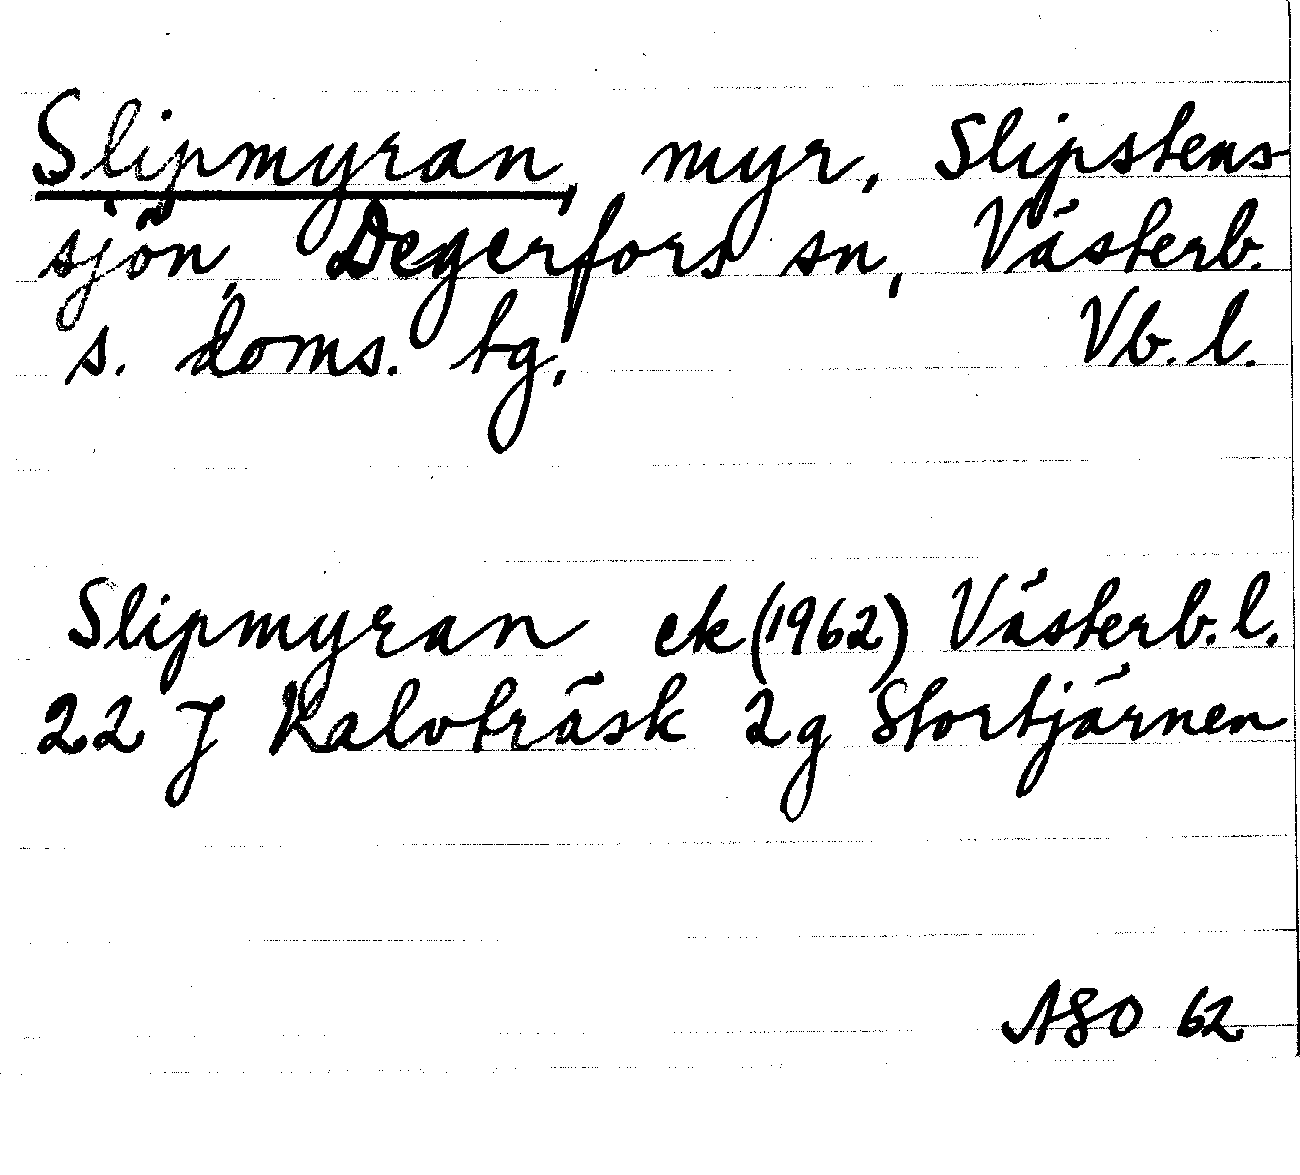 Slipmyran, myr, Slipstens-
sjön, Degerfors sn, Västerb.
s. doms. tg. Vb. l.
Slipmyran ek (1962) Västerb. l.
22 J Kalvträsk 2g Stortjärnen
ASO 62